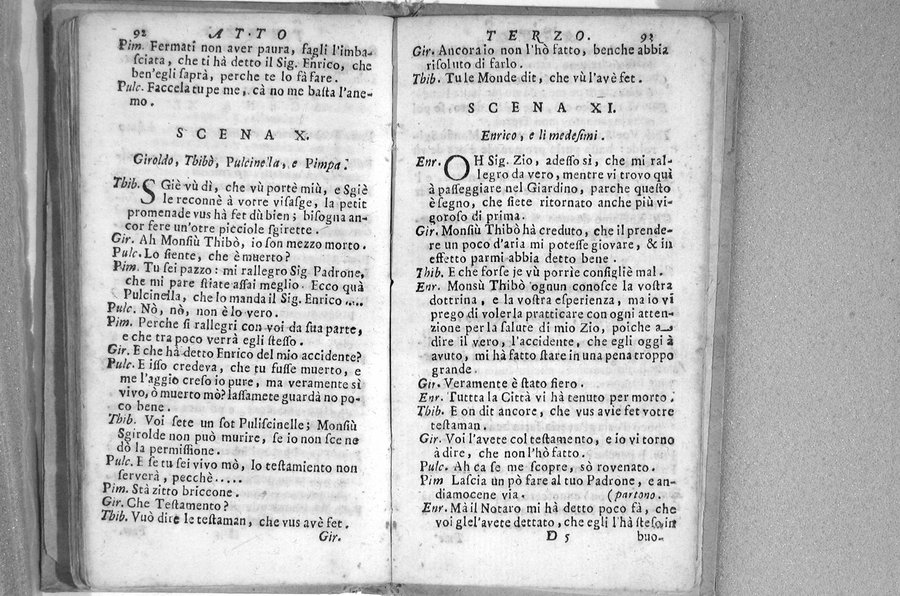 92 ATTO
Pim. Fermati non aver paura, fagli l'imba-
sciata, che ti hà detto il Sig. Enrico, che
ben'egli saprà, perche te lo fà fare.
Pulc. Faccela tu pe me, cà no me basta l'ane-
mo.
SCENA X.
Giroldo, Thibò, Pulcinella, e Pimpa.
Thib. SGiè vù dì, che vù portè miù, e Sgiè
le reconnè à vorre visasge, la petit
promenade vus hà fet dù bien; bisogna an-
cor fere un'otre picciole sgirette.
Gir. Ah Monsiù Thibò, io son mezzo morto.
Pulc. Lo siente, che è muerto?
Pim. Tu sei pazzo: mi rallegro Sig. Padrone,
che mi pare stiate assai meglio. Ecco quà
Pulcinella, che lo manda il Sig. Enrico ....
Pulc. Nò, nò, non è lo vero.
Pim. Perche si rallegri con voi da sua parte,
e che tra poco verrà egli stesso.
Gir. E che hà detto Enrico del mio accidente?
Pulc. E isso credeva, che tu fusse muerto, e
me l'aggio creso io pure, ma veramente sì
vivo, ò muerto mò? lassamete guardà no po-
co bene.
Thib. Voi sete un sot Puliscinelle; Monsiù
Sgirolde non può murire, se io non sce ne
dò la permissione.
Pulc. E se tu sei vivo mò, lo testamiento non
serverà, pecchè.....
Pim. Stà zitto briccone.
Gir. Che Testamento?
Thib. Vuò dire le testaman, che vus avè fet.
Gir.
TERZO. 93
Gir. Ancora io non l'hò fatto, benche abbia
risoluto di farlo.
Thib. Tu le Monde dit, che vù l'avè fet.
SCENA XI.
Enrico, e li medesimi.
Enr. OH Sig. Zio, adesso sì, che mi ral-
legro da vero, mentre vi trovo quì
à passeggiare nel Giardino, parche questo
è segno, che siete ritornato anche più vi-
goroso di prima.
Gir. Monsiù Thibò hà creduto, che il prende-
re un poco d'aria mi potesse giovare, & in
effetto parmi abbia detto bene.
Thib. E che forse je vù porriè consigliè mal.
Enr. Monsù Thibò ognun conosce la vostra
dottrina, e la vostra esperienza, ma io vi
prego di volerla pratticare con ogni atten-
zione per la salure di mio Zio, poiche a
dire il vero, l'accidente, che egli oggi à
avuto, mi hà fatto stare in una pena troppo
grande.
Gir. Veramente è stato fiero.
Enr. Tuttta la Città vi hà tenuto per morto.
Thib. E on dit ancore, che vus avie fet votre
testaman.
Gir. Voi l'avete col testamento, e io vi torno
à dire, che non l'hò fatto.
Pulc. Ah ca se me scopre, sò rovenato.
Pim Lascia un pò fare al tuo Padrone, e an-
diamocene via. (partono.
Enr. Mà il Notaro mi hà detto poco fà, che
voi glel'avete dettato, che egli l'hà steso in
D 5 buo-